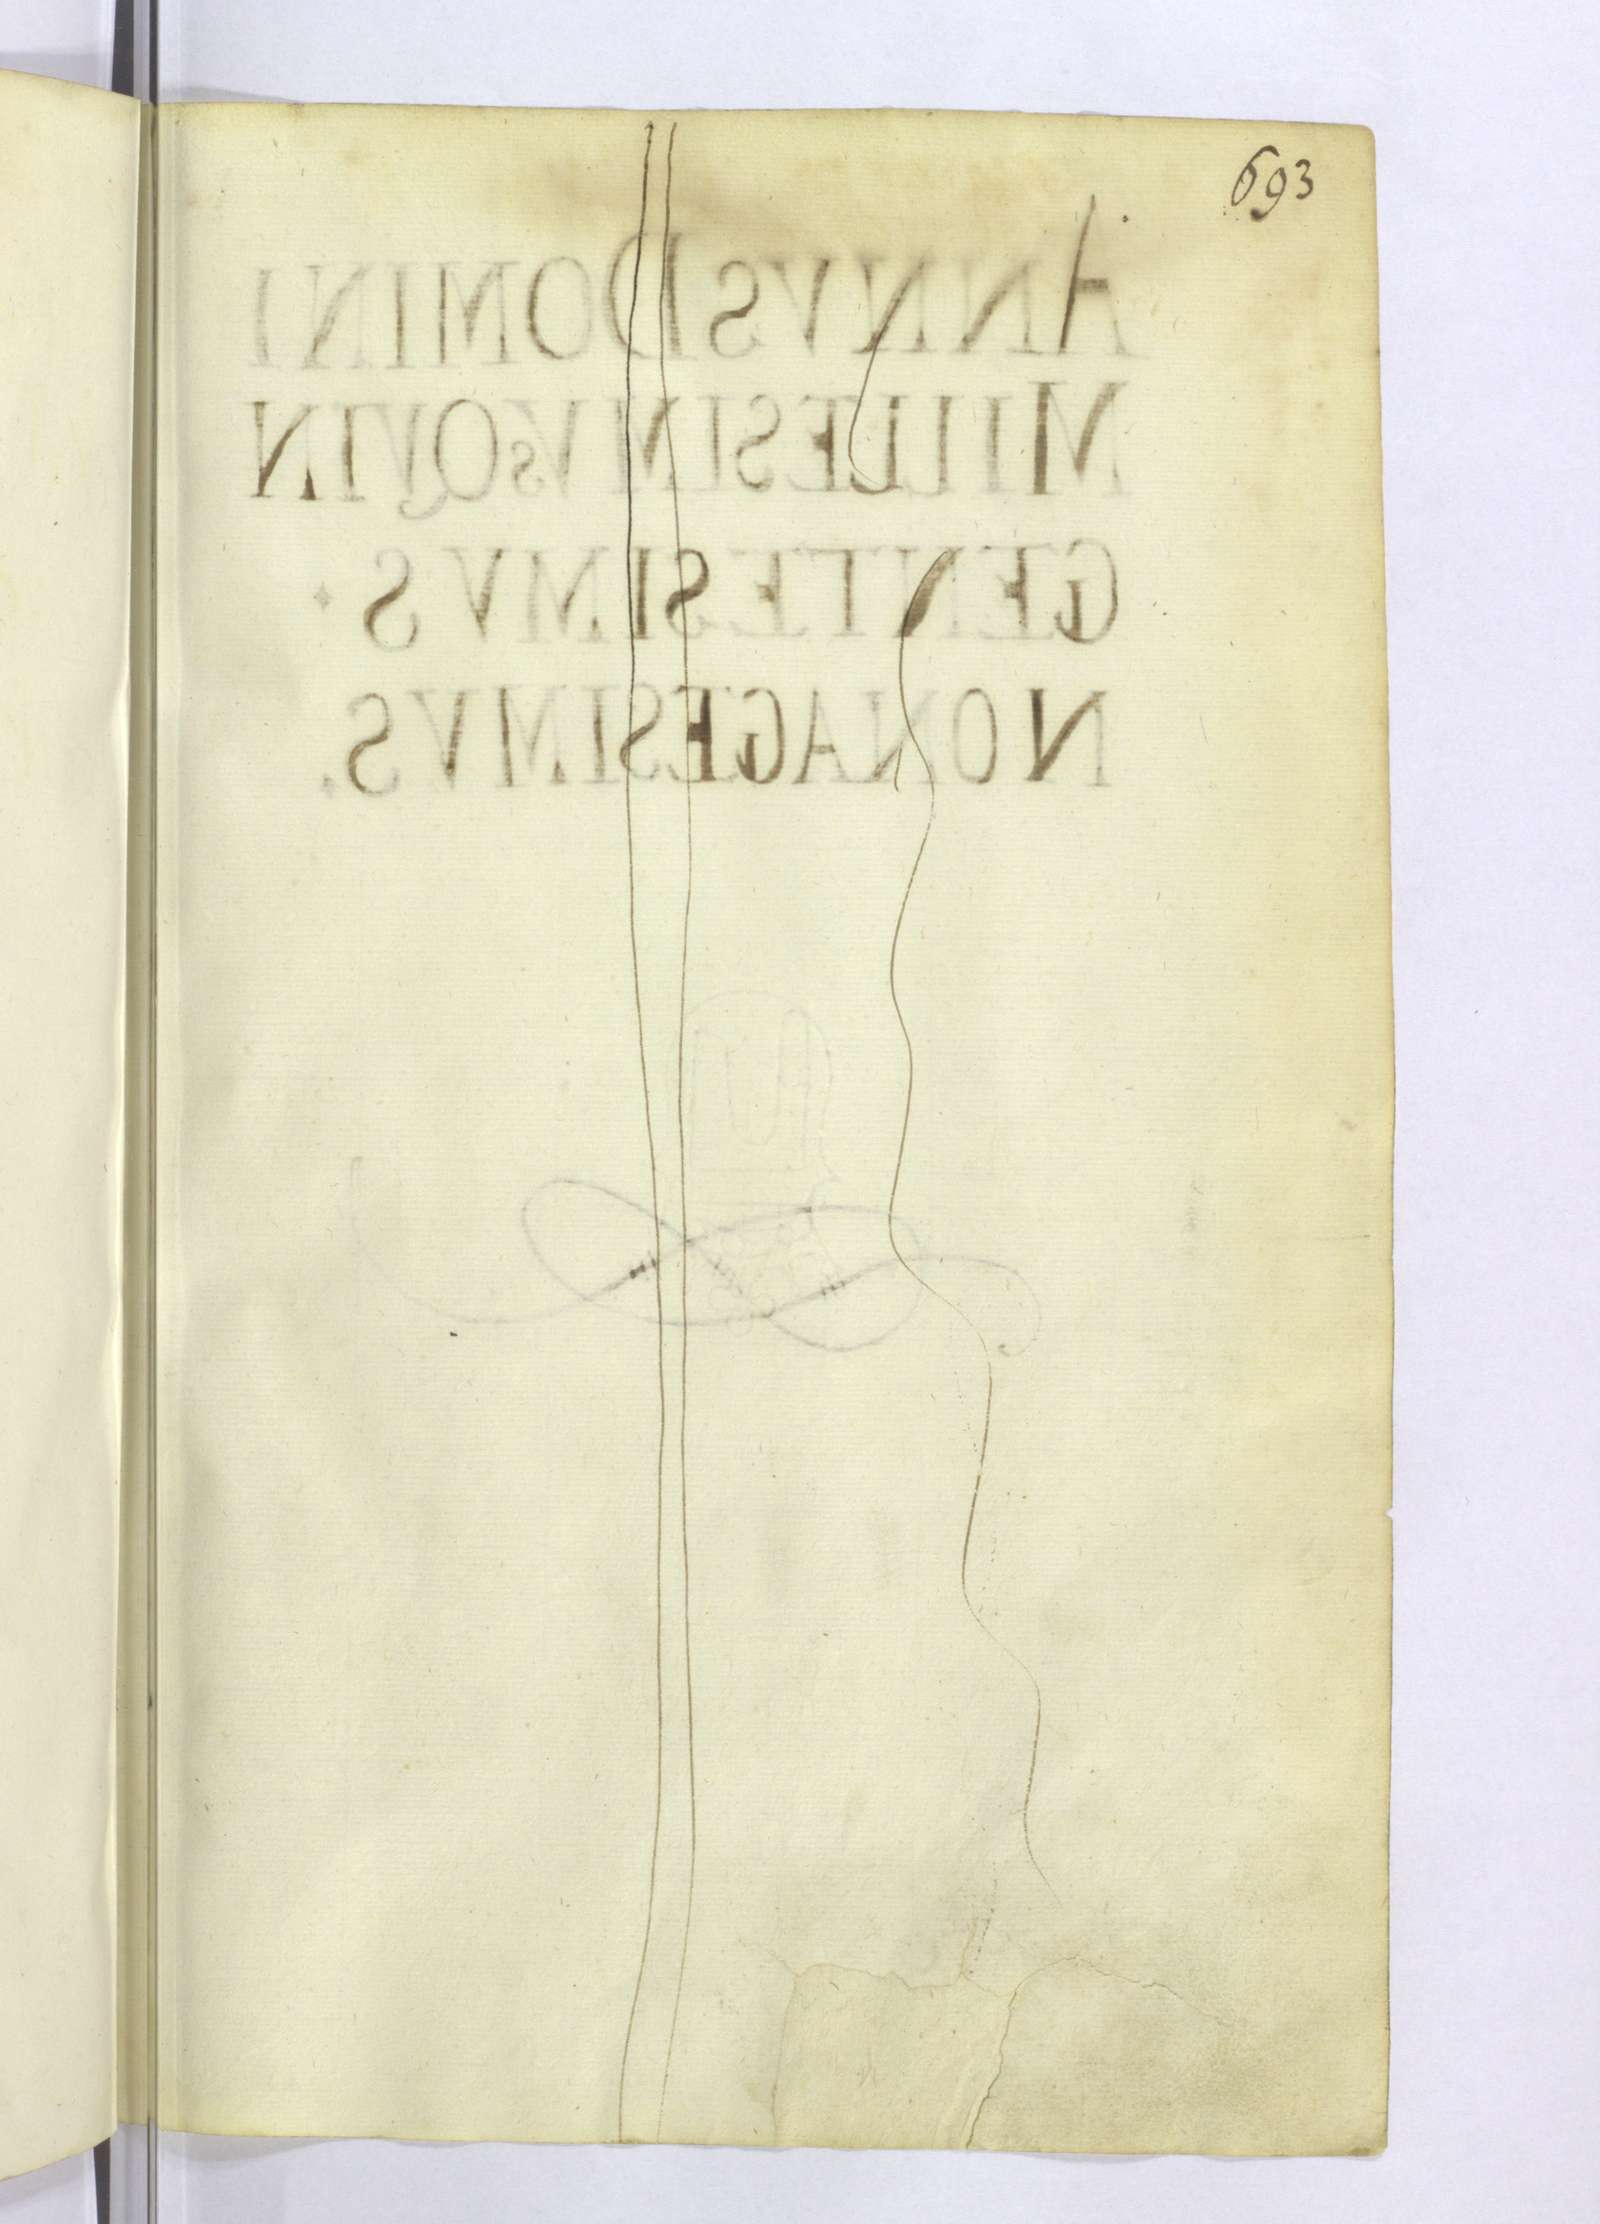 693
ANNVS DOMINI
MILLESIMVS QVIN
GENTESIMVS
NONAGESIMVS.